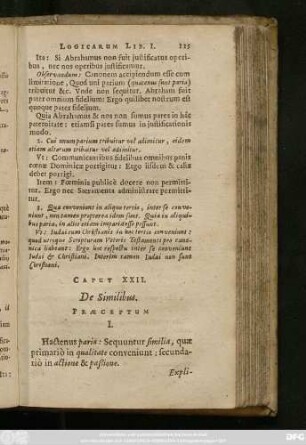 LOGICARUM LIB. I. 125
Ita: Si Abrahamus non fuit justificatus operi-
bus, nec nos operibus justificamur.
Observandum: Canonem accipiendum esse cum
limitatione, Quod uni parium (quatenus sunt paria)
tribuitur &c. Unde non sequitur, Abraham fuit
pater omnium fidelium: Ergo quilibet nostrum est
quoque pater omnium fidelium:
Quia Abrahamus & nos non sumus pares in hac
paternitate: etiamsi pares sumus in justificationis
modo.
2. Cui unum parium tribuitur vel adimitur, eidem
etiam alterum tribuitur vel adimitur.
Ut: Communicantibus fidelibus omnibus panis
cœnæ Dominicæ porrigitur: Ergo iisdem & calix
debet porrigi.
Item: Fœminis publicè docere non permitti-
tur. Ergo nec Sacramenta administrare permitti-
tur.
3. Quæ conveniunt in aliquo tertio, inter se conve-
niunt, non tamen propterea idem sunt. Quia in aliqui-
bus paria, in aliis etiam imparia esse possunt.
Ut: Judæi cum Christianis in hoc tertio conveniunt:
quod utrique Scripturam Veteris Testamenti pro cano-
nica habeant: Ergo hoc respectu inter se conveniunt
Judæi & Christiani. Interim tamen Judæi non sunt
Christiani.
CAPUT XXII.
De Similibus.
PRÆCEPTUM
I.
Hactenus paria: Sequuntur similia, quæ
primariò in qualitate conveniunt: secunda-
riò in actione & passione.
Expli-